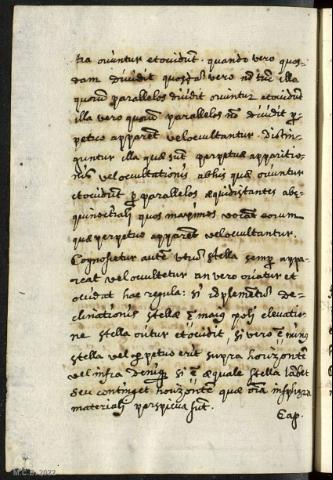 tra oriuntur et ocidunt. quando vero quos-
dam dividit quosdã vero nõ tũc illa
quorũ parallelos dividit oriuntur et ocidũt
illa vero quorũ parallelos nõ dividit per-
petuo apparẽt vel ocultantur. Distin-
guntur illa quæ sũt perpetuæ apparitio-
nis vel ocultationis ab his quæ oriuntur
et ocidũt per parallelos æquidistantes ab
quinoctiali quos maximos vocãt eorum
quæ perpetuo apparẽt vel ocultantur.
Cognoscetur autẽ utrũ stella semper appa-
reat vel ocultetur an vero oriatur et
ocidat hac regula: si cõplemẽtũ de-
clinationis stellæ ẽ maig poli elevatio-
ne stella oritur et ocidit, si vero ẽ minus
stella vel perpetuo erit supra horizontẽ
vel infra deniq si ẽ æquale stella
seu continget horizontẽ quæ oĩa in sphæra
materiali perspicua sũt.
Cap.
M.C.E. 2022